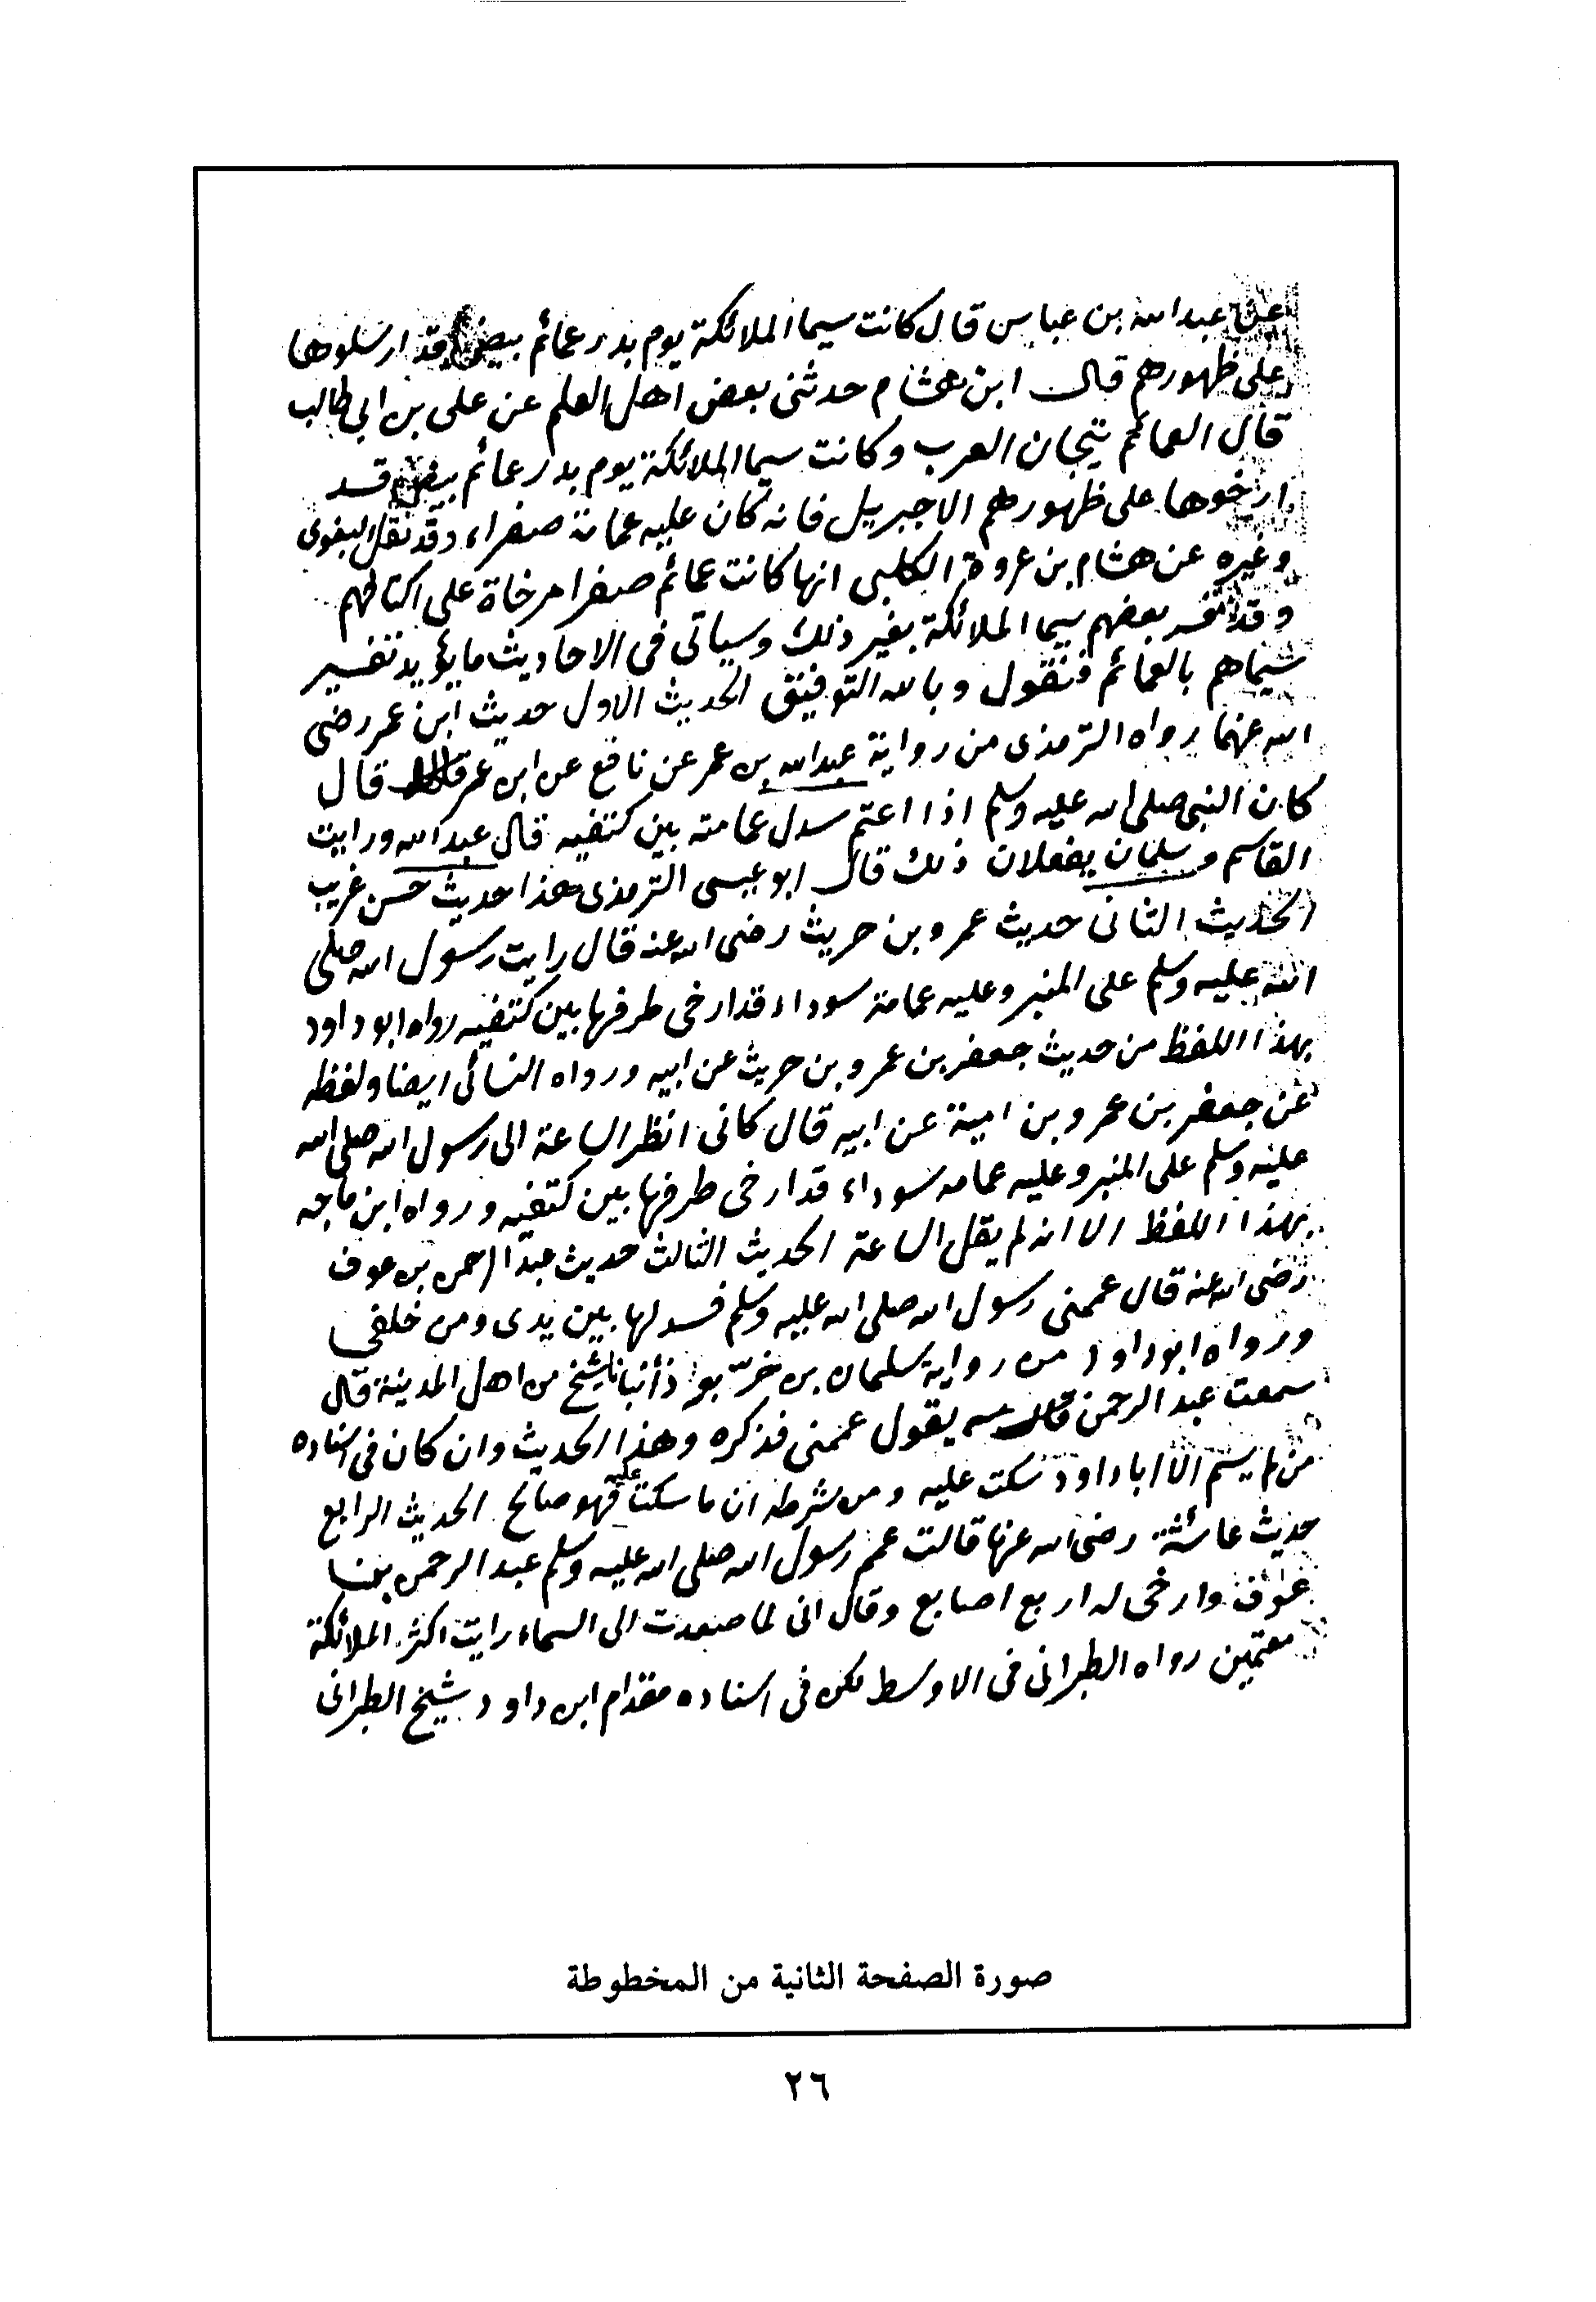 عن عبدالله بن عباس قال كانت سيما الملائكة يوم بدر عمائم بيض قد ارسلوها
على ظهورهم قال ابن هشام حدثنى بعض اهل العلم عن على بن ابى طالب
قال العمائم تيجان العرب وكانت سيما الملائكة يوم بدر عمائم بيض قد
ارخوها على ظهورهم الا جبريل فانه كان عليه عمامة صفراء وقد نقل البغوى
وغيره عن هشام بن عروة الكلبى انها كانت عمائم صفرا مرخاة على اكتافهم
وقد فسر بعضهم سيما الملائكة بغير ذلك وسياتى فى الاحاديث ما يؤيد تفسير
سيماهم بالعمائم فنقول وبالله التوفيق الحديث الاول حديث ابن عمر رضى
الله عنهما رواه الترمذى من رواية عبدالله بن عمر عن نافع عن ابن عمر قال
كان النبى صلى الله عليه وسلم اذا اعتم سدل عمامته بين كتفيه قال عبدالله ورايت
القاسم وسلمان يفعلان ذلك قال ابو عيسى الترمذى هذا حديث حسن غريب
الحديث الثانى حديث عمرو بن حريث رضى الله عنه قال رايت رسول الله صلى
الله عليه وسلم على المنبر وعليه عمامة سوداء قد ارخى طرفها بين كتفيه رواه ابو داود
بهذا اللفظ من حديث جعفر بن عمرو بن حريث عن ابيه ورواه النسائى ايضا ولفظه
عن جعفر بن عمرو بن امية عن ابيه قال كانى انظر الساعة الى رسول الله صلى الله
عليه وسلم على المنبر وعليه عمامه سوداء قد ارخى طرفها بين كتفيه ورواه ابن ماجه
بهذا اللفظ الا انه لم يقل الساعة الحديث الثالث حديث عبد الرحمن بن عوف
رضى الله عنه قال عممنى رسول الله صلى الله عليه وسلم فسدلها بين يدى ومن خلفى
ورواه ابو داود من رواية سلمان بن خرّبوذ أنبانا شيخ من اهل المدينة قال
سمعت عبد الرحمن يقول عممنى فذكره وهذا الحديث وان كان فى اسناده
من لم يسم الا ان ابا داود سكت عليه ومن شرطه ان ما سكت عليه فهو صالح الحديث الرابع
حديث عائشة رضى الله عنها قالت عمم رسول الله صلى الله عليه وسلم عبد الرحمن بن
عوف وارخى له اربع اصابع وقال انى لما صعدت الى السماء رايت اكثر الملائكة
معتمين رواه الطبرانى فى الاوسط لكن فى اسناده مقدام ابن داود شيخ الطبرانى
صورة الصفحة الثانية من المخطوطة
٢٦